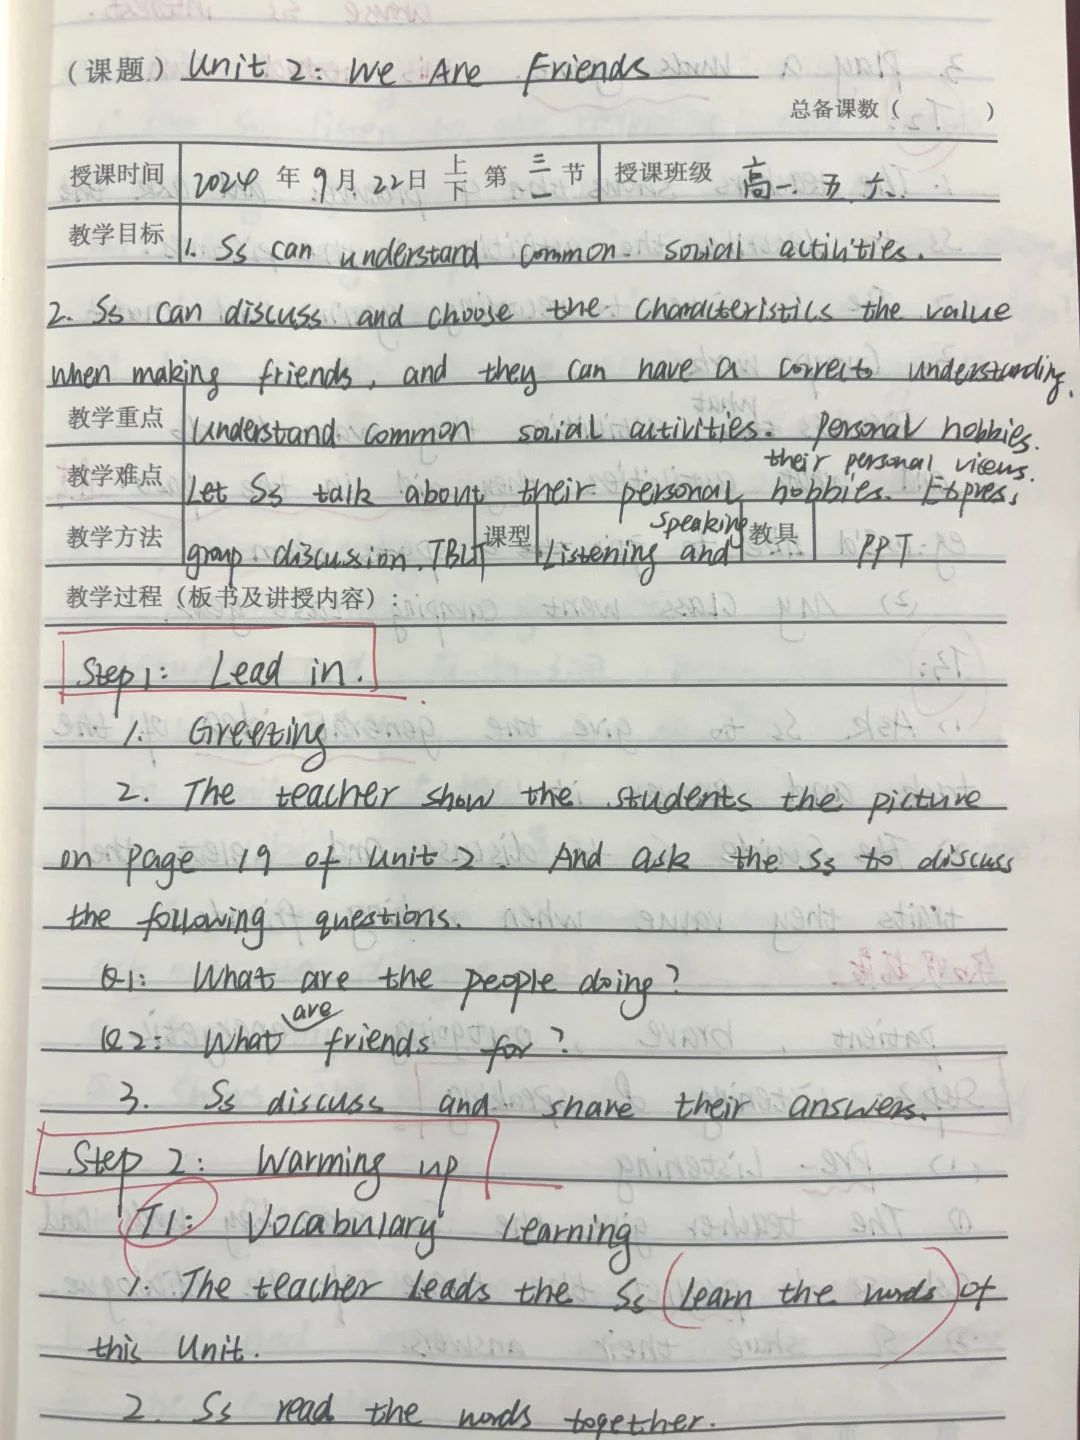 (课题) Unit 2: We Are Friends
总备课数 ( )
授课时间 2024 年 9 月 22 日 上 下 第 三 一 节 授课班级 高一. 五 六.
教学目标 1. Ss can understand common social activities.
2. Ss can discuss and choose the characteristics the value
when making friends, and they can have a correct understanding.
教学重点 Understand common social activities. Personal hobbies.
their personal views.
教学难点 Let Ss talk about their personal hobbies. Express
教学方法 group discussion. TBLT 课型 Listening and Speaking 教具 PPT
教学过程 (板书及讲授内容):
Step 1: Lead in.
1. Greeting
2. The teacher show the students the picture
on page 19 of Unit 2. And ask the Ss to discuss
the following questions.
Q1: What are the people doing?
Q2: What are friends for?
3. Ss discuss and share their answers.
Step 2: Warming up
T1: Vocabulary Learning
1. The teacher leads the Ss (learn the words) of
this Unit.
2. Ss read the words together.